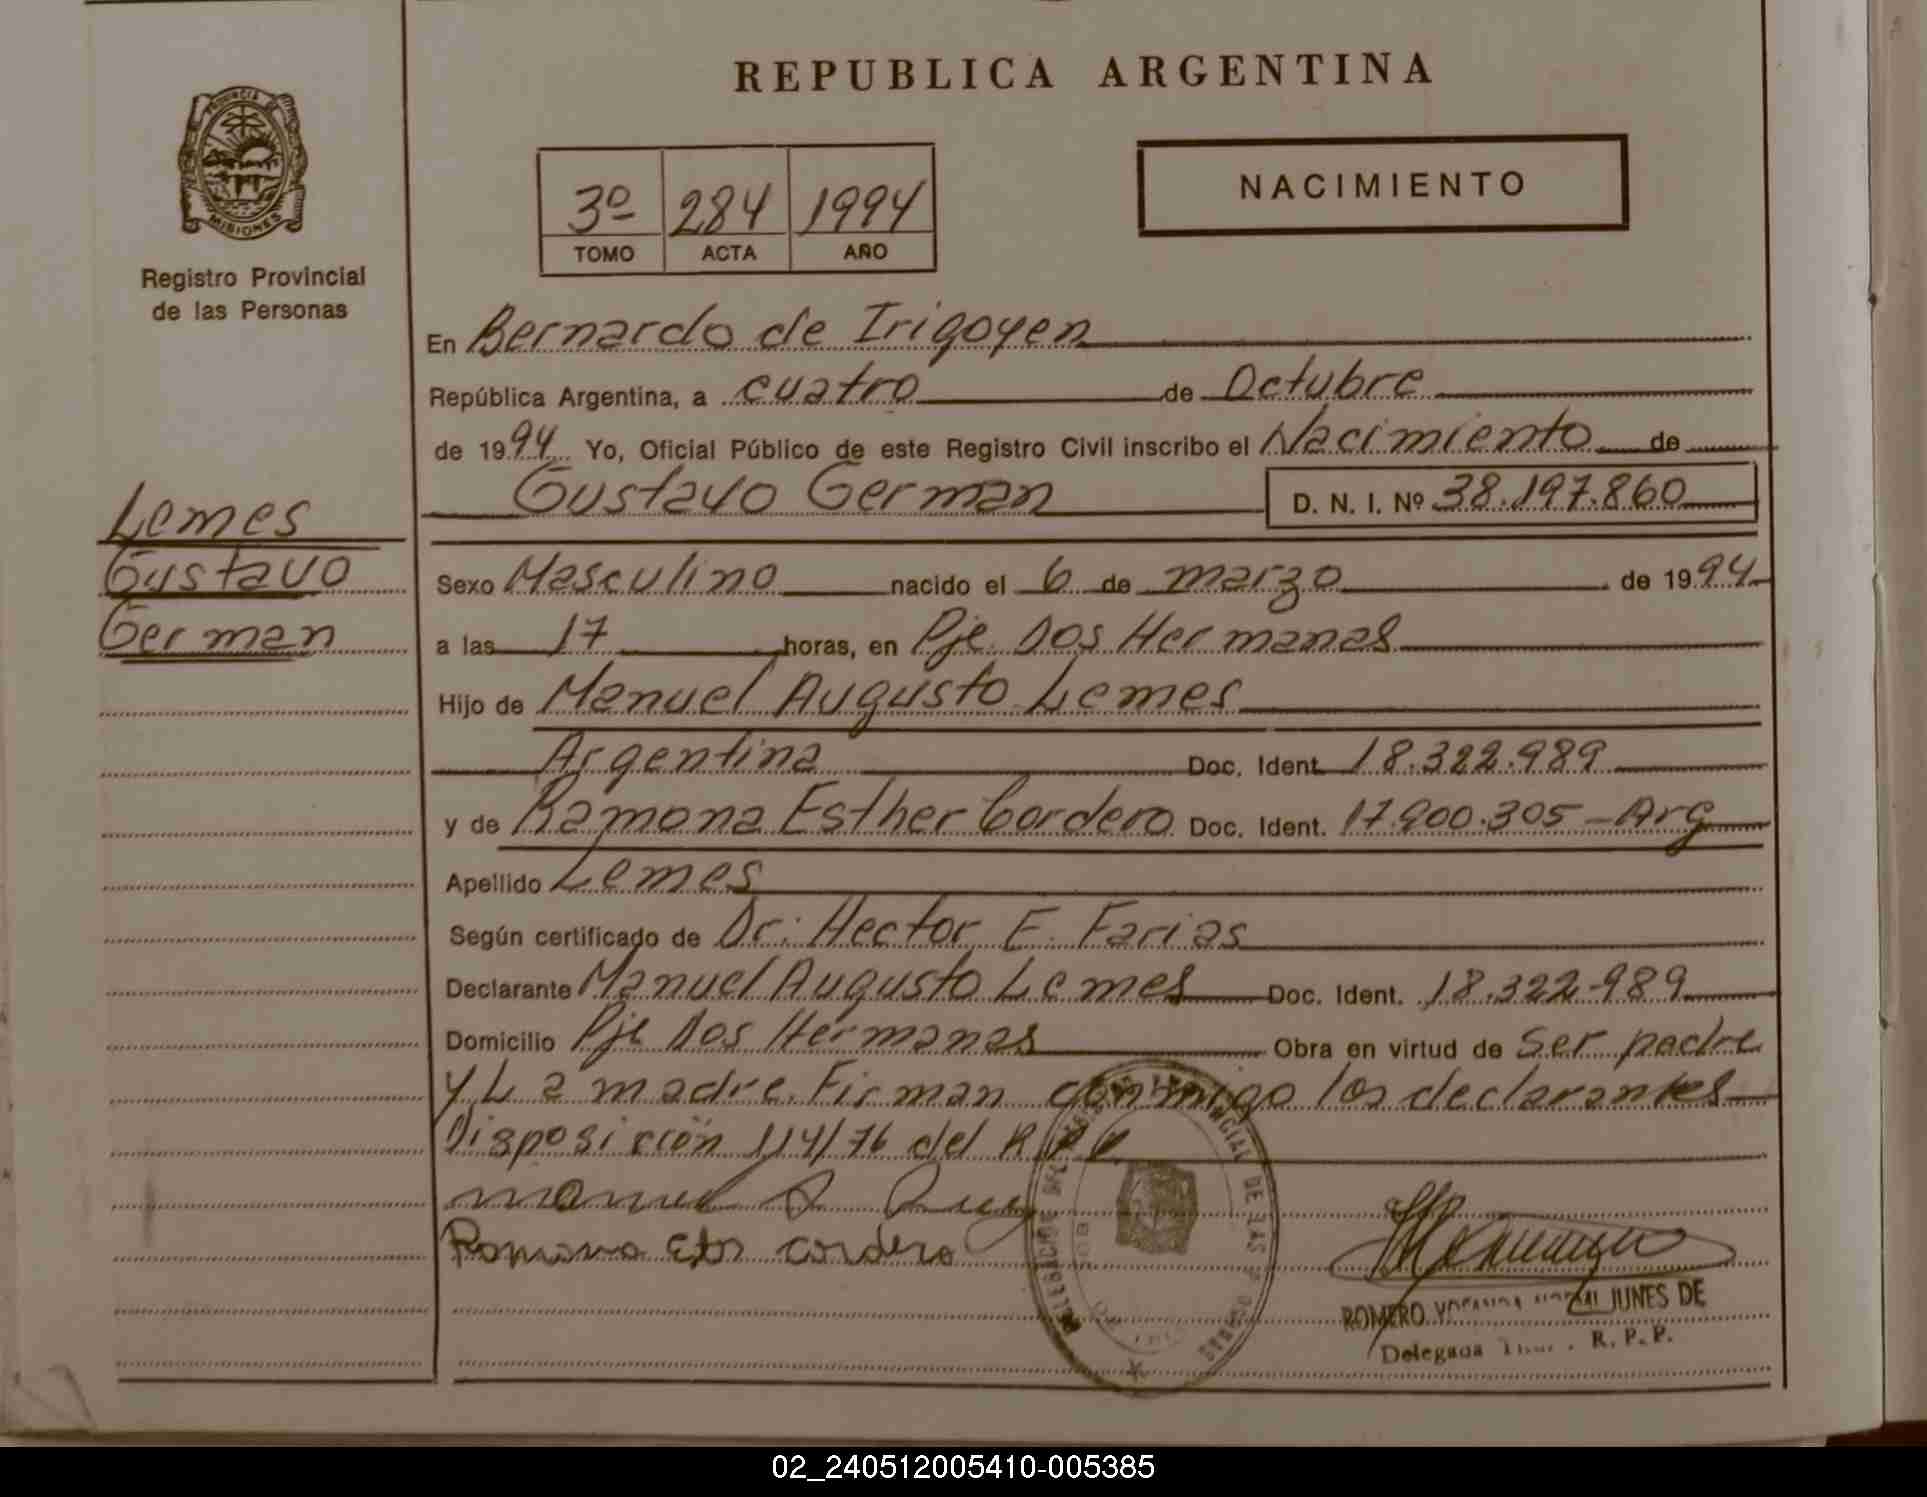 REPUBLICA ARGENTINA
PROVINCIA DE
MISIONES
Registro Provincial
de las Personas
3º 284 1994
TOMO ACTA AÑO
NACIMIENTO
En Bernardo de Irigoyen
República Argentina, a cuatro de Octubre
de 1994 Yo, Oficial Público de este Registro Civil inscribo el Nacimiento de
Gustavo German D. N. I. Nº 38.197.860
Lemes
Gustavo
German
Sexo Masculino nacido el 6 de marzo de 1994
a las 17 horas, en Pje Dos Hermanas
Hijo de Manuel Augusto Lemes
Argentina Doc. Ident. 18.322.989
y de Ramona Esther Cordero Doc. Ident. 17.900.305 - Arg
Apellido Lemes
Según certificado de Dr: Hector E. Farias
Declarante Manuel Augusto Lemes Doc. Ident. 18.322-989
Domicilio Pje Dos Hermanas Obra en virtud de Ser padre
y La madre. Firman conmigo los declarantes
Disposición 114/76 del R.P.P
Ramona Cordero
ROMERO JUNES DE
Delegada R. P. P.
02_240512005410-005385